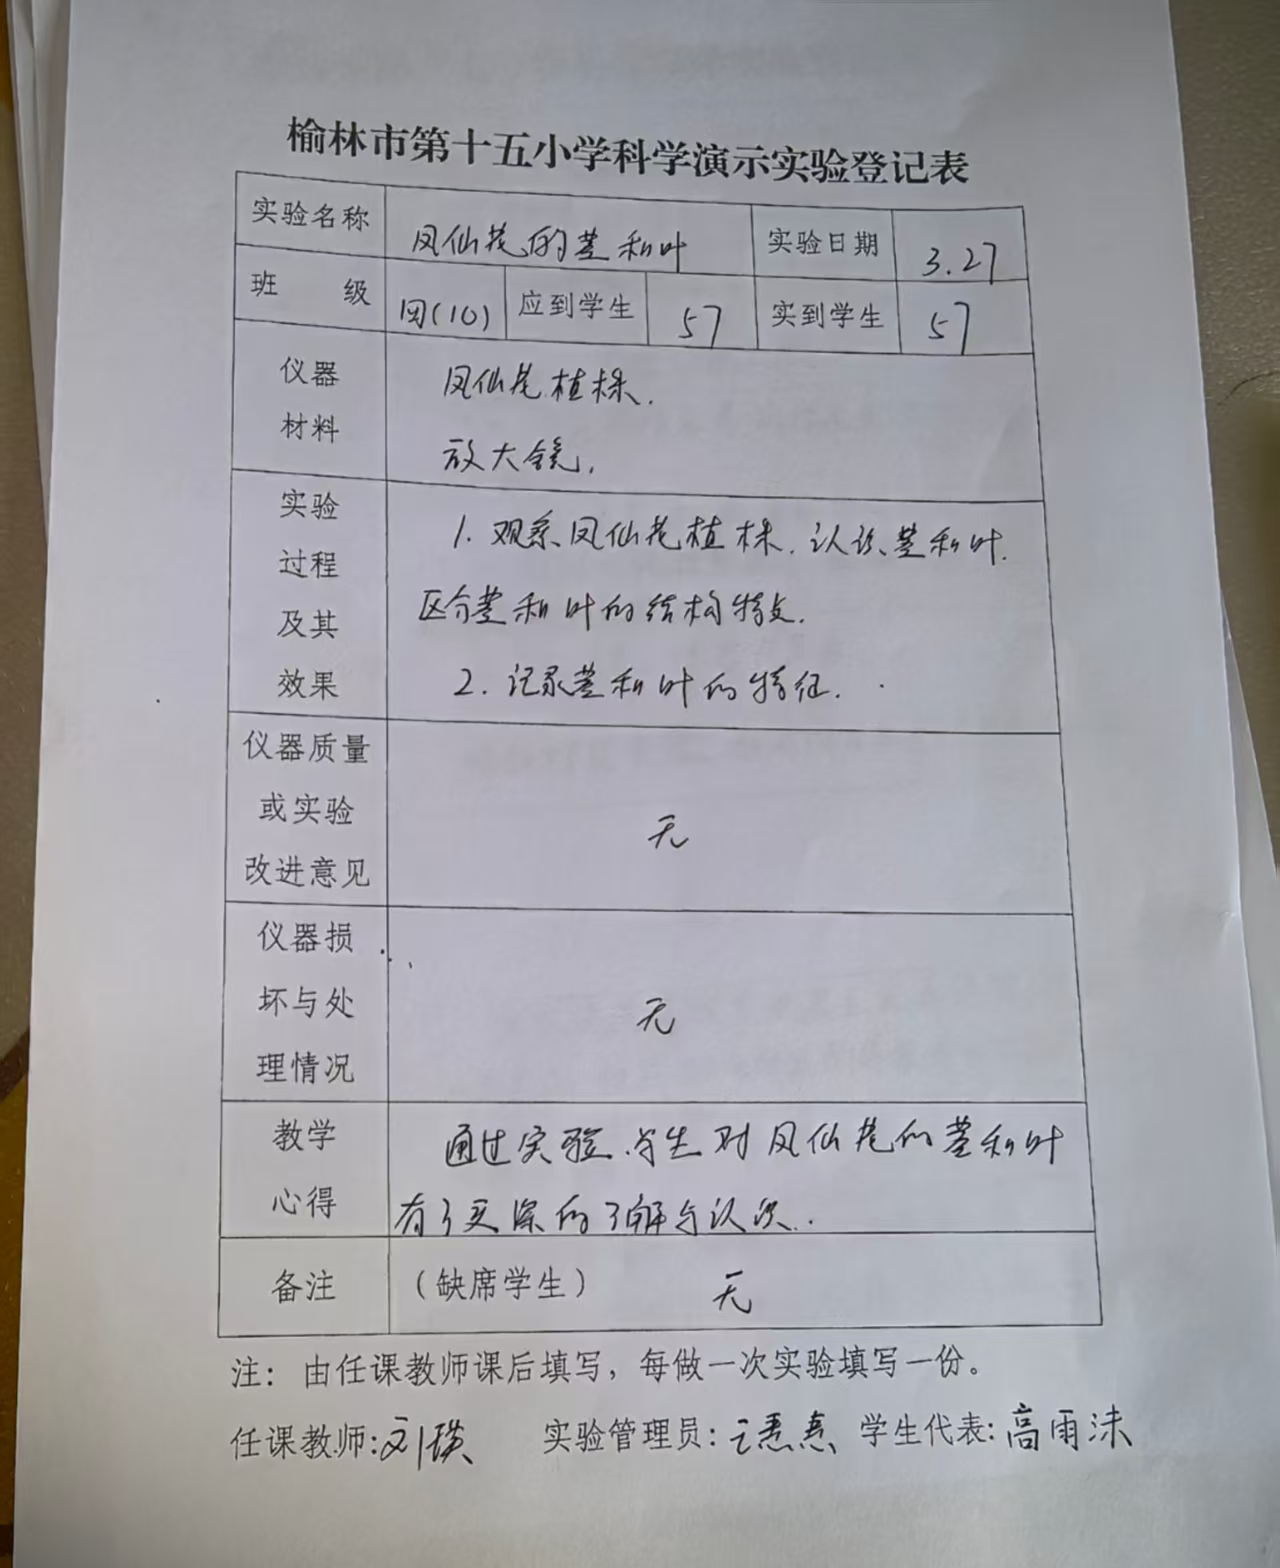 榆林市第十五小学科学演示实验登记表
实验名称 凤仙花的茎和叶 实验日期 3.27
班 级 四(10) 应到学生 57 实到学生 57
仪器
材料
凤仙花植株.
放大镜.
实验
过程
及其
效果
1. 观察凤仙花植株.认识茎和叶.
区分茎和叶的结构特点.
2. 记录茎和叶的特征.
仪器质量
或实验
改进意见
无
仪器损
坏与处
理情况
无
教学
心得
通过实验.学生对凤仙花的茎和叶
有了更深的了解与认识.
备注 (缺席学生) 无
注：由任课教师课后填写，每做一次实验填写一份。
任课教师:刘瑛 实验管理员: 学生代表:高雨沫